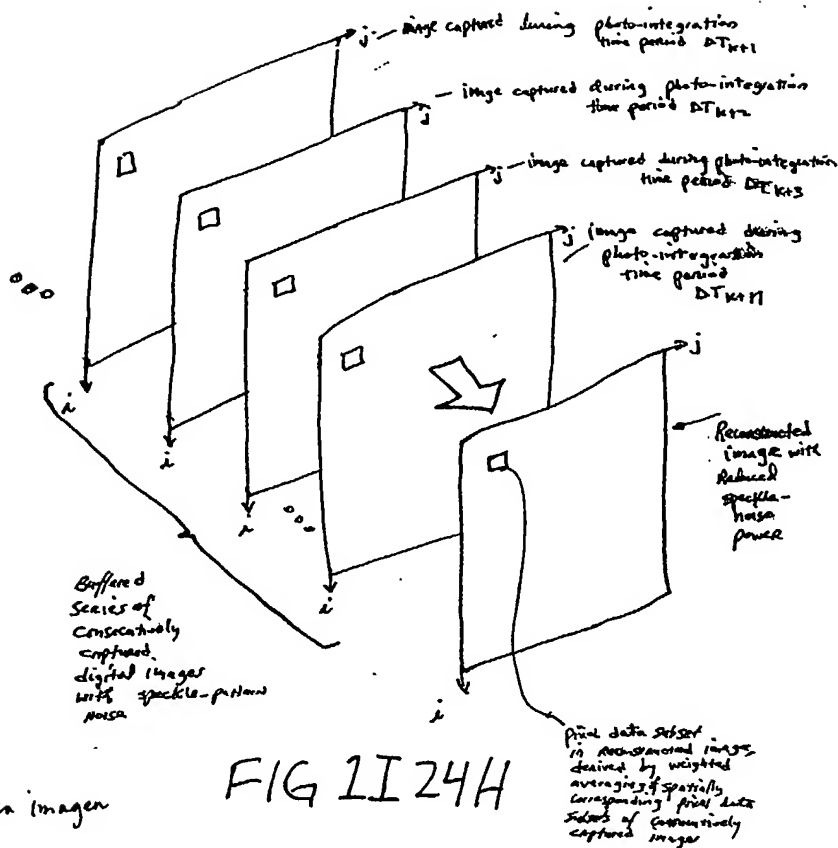 j image captured during photo-integration
time period ΔT K+1
j image captured during photo-integration
time period ΔT K+2
j image captured during photo-integration
time period ΔT K+3
j image captured during
photo-integration
time period
ΔT K+N
j
i
i
i
i
i
Reconstructed
image with
Reduced
speckle-
noise
power
Buffered
Series of
Consecutively
captured
digital images
with speckle-pattern
noise
pixel data subset
in reconstructed image,
derived by weighted
averaging of spatially
corresponding pixel data
subsets of consecutively
captured images
FIG 1I24H
imagen